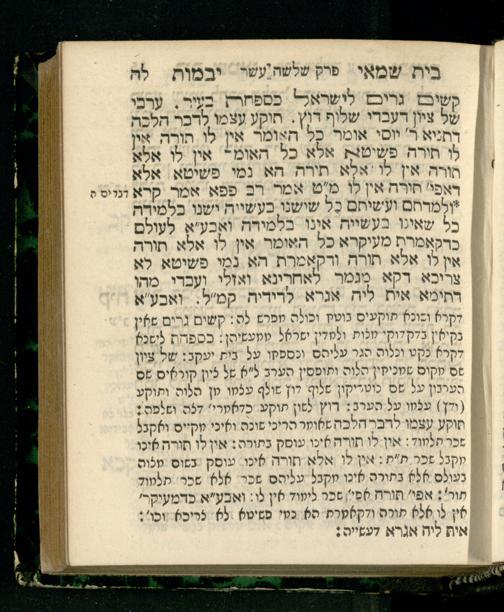 בית שמאי פרק שלשה עשר יבמות לה
קשים גרים לישראל כספחת בעיר. ערבי
של ציון דעבדי שלוף דוץ. תוקע עצמו לדבר הלכה
דתניא ר' יוסי אומר כל האומר אין לו תורה אין
לו תורה פשיטא אלא כל האומר אין לו אלא
תורה אין לו אלא תורה הא נמי פשיטא אלא
דאפי' תורה אין לו מ"ט אמר רב פפא אמר קרא
דברים ה
*ולמדתם ועשיתם כל שישנו בעשייה ישנו בלמידה
כל שאינו בעשייה אינו בלמידה ואבע"א לעולם
כדקאמרת מעיקרא כל האומר אין לו אלא תורה
אין לו אלא תורה ודקאמרת הא נמי פשיטא לא
צריכא דקא מגמר לאחרינא ואזלי ועבדי מהו
דתימא אית ליה אגרא לדידיה קמ"ל. ואבע"א
דקרא ושונא תוקעים בוטח וכולה מפרש לה: קשים גרים שאין
בקיאין בדקדוקי מצות ולמדין ישראל ממעשיהן: כספחת לישנא
דקרא נקט ונלוה הגר עליהם ונספחו על בית יעקב: של ציון
שם מקום שמניחין הלוה ותופסין הערב ל"א של ציון קוראים שם
הערבון על שם שלוף דוץ שולף עצמו מן הלוה ותוקע
(ודץ) עצמו על הערב: דוץ לשון תוקע כדאמרי' דצה ושלפה:
תוקע עצמו לדבר הלכה שאומר הריני שונה ואיני מקיים ואקבל
שכר תלמוד: אין לו תורה אינו עוסק בתורה: אין לו תורה אינו
מקבל שכר ת"ת: אין לו אלא תורה אינו עוסק בשום מצוה
בעולם אלא בתורה אינו מקבל עליהם שכר אלא שכר תלמוד
תור': אפי' תורה אפי' שכר לימוד אין לו: ואבע"א כדמעיקר'
אין לו אלא תורה ודקאמרת הא נמי פשיטא לא צריכא וכו':
אית ליה אגרא דעשייה: